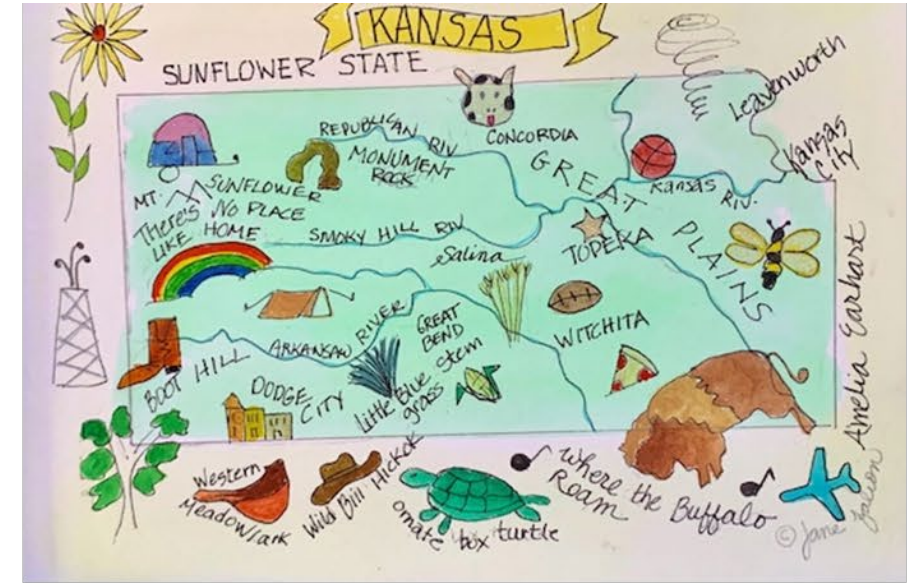 KANSAS
SUNFLOWER STATE
Leavenworth
Kansas
City
REPUBLICAN
RIV
CONCORDIA
MONUMENT
ROCK
GREAT
PLAINS
Kansas
RIV.
MT.
SUNFLOWER
THERE'S NO PLACE
LIKE HOME
SMOKY HILL RIV
Salina
TOPEKA
ARKANSAW RIVER
GREAT
BEND
WITCHITA
BOOT HILL
DODGE
CITY
Little Blue Stem
grass
Amelia Earhart
Western
Meadowlark
Wild Bill Hickok
ornate box turtle
Where the Buffalo
Roam
© Jane